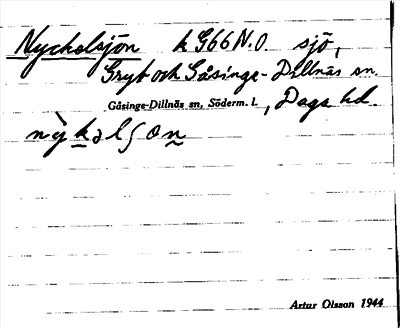 Nyckelsjön k G66 N.O. sjö,
Gryt och Gåsinge-Dillnäs sn.
Gåsinge-Dillnäs sn, Söderm. l., Daga hd.
nỳkəlʃon
Artur Olsson 1944